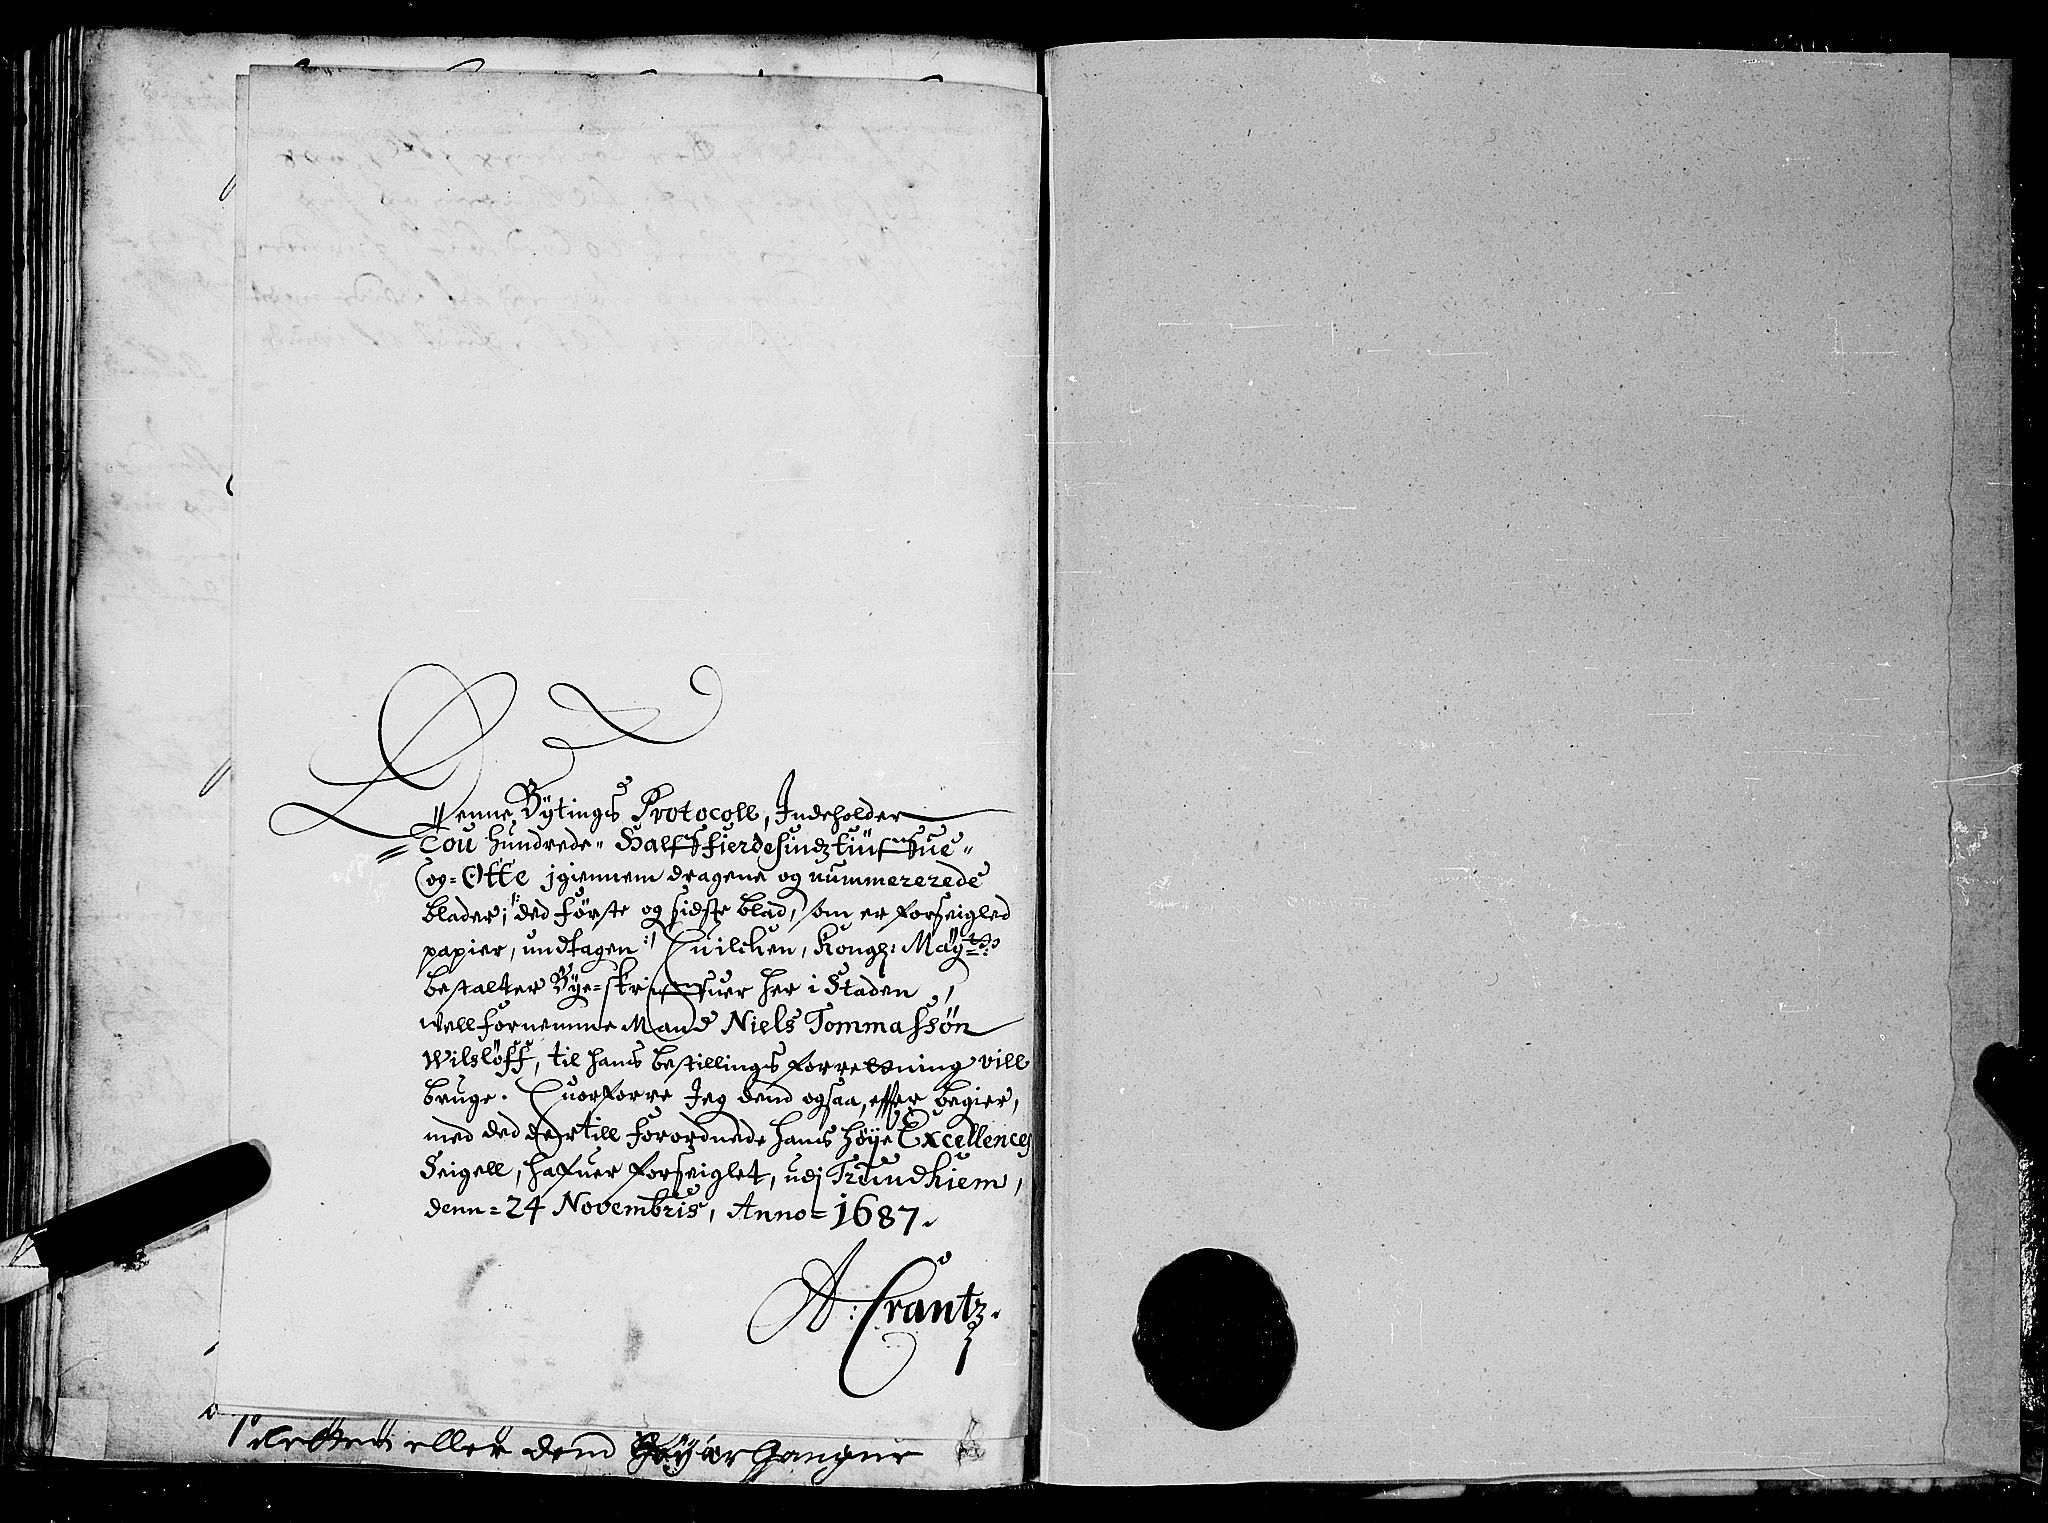 Denne Bÿtings Protocoll, Indeholder
Tou hundrede- Halfffierdesindztiufue-
og- Otte jgiennem dragene og nummererede
blader, /: ded første og sidste blad, som er forseigled
papier, undtagen :/ Huilchen, Kongl: Maÿ:ts:
bestalter Bÿe-skrifuer her i Staden,
vellfornemme Mand Niels Tommassøn
Wilsløff, til hans bestillings forretning vill
bruge. Huorforre Jeg dend ogsaa, effter begier,
med ded dertill forordnede hans høÿe Excellences
Seigell, hafuer forseiglet, udj Trundhiem,
denn- 24 Novembris, Anno- 1687.
A: Crantz.
eller dend